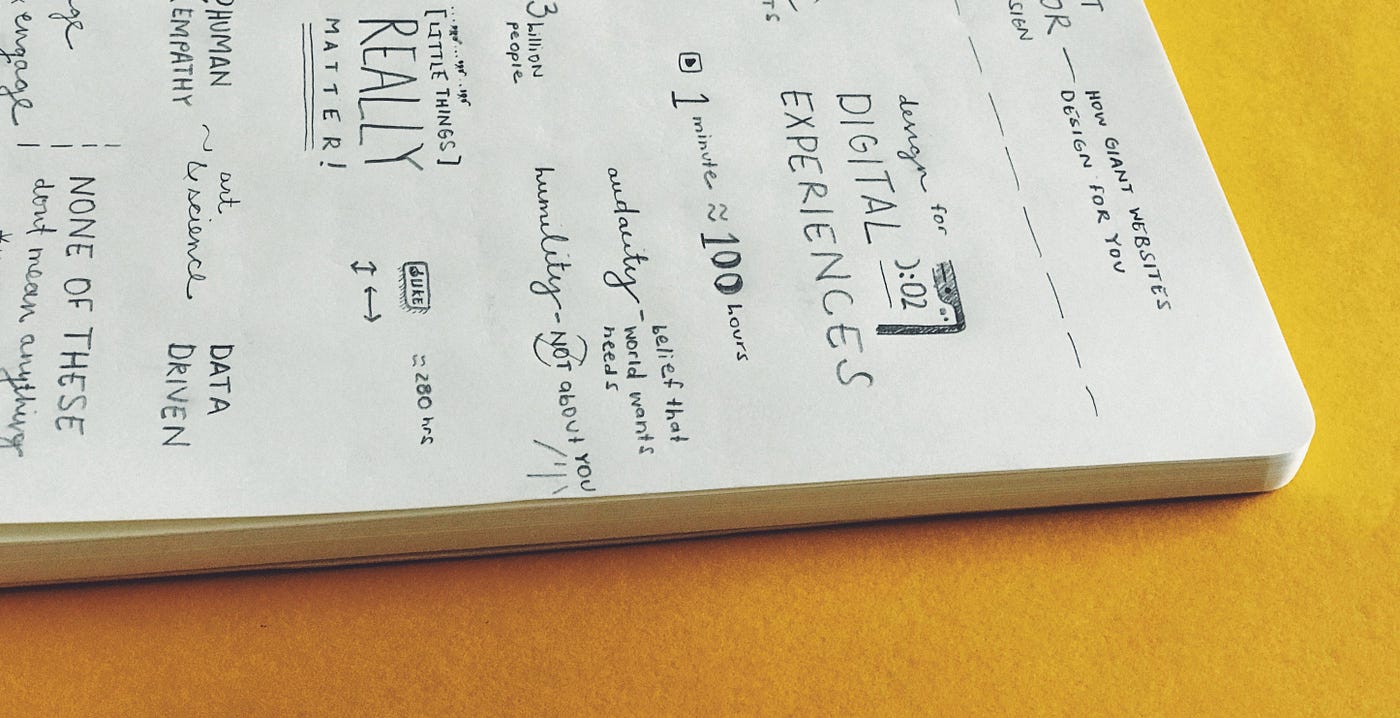 HOW GIANT WEBSITES
DESIGN FOR YOU
design for
DIGITAL
EXPERIENCES
1 minute ≈ 100 hours
belief that
audacity - world wants
needs
3 billion
people
humility - NOT about YOU
[LITTLE THINGS]
REALLY
MATTER!
LIKE ≈ 280 hrs
HUMAN ~ art DATA
EMPATHY & science DRIVEN
NONE OF THESE
engage dont mean anything